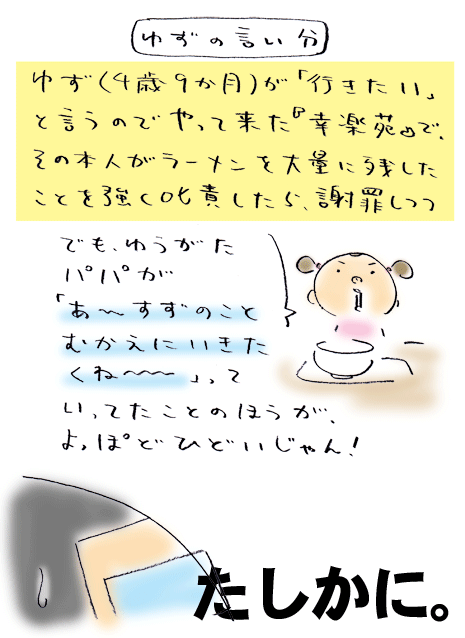 ゆずの言い分
ゆず(4歳9か月)が「行きたい」
と言うのでやって来た『幸楽苑』で、
その本人がラーメンを大量に残した
ことを強く叱責したら、謝罪しつつ
でも、ゆうがた
パパが
「あ〜すずのこと
むかえにいきた
くね〜〜」って
いってたことのほうが、
よっぽどひどいじゃん!
たしかに。